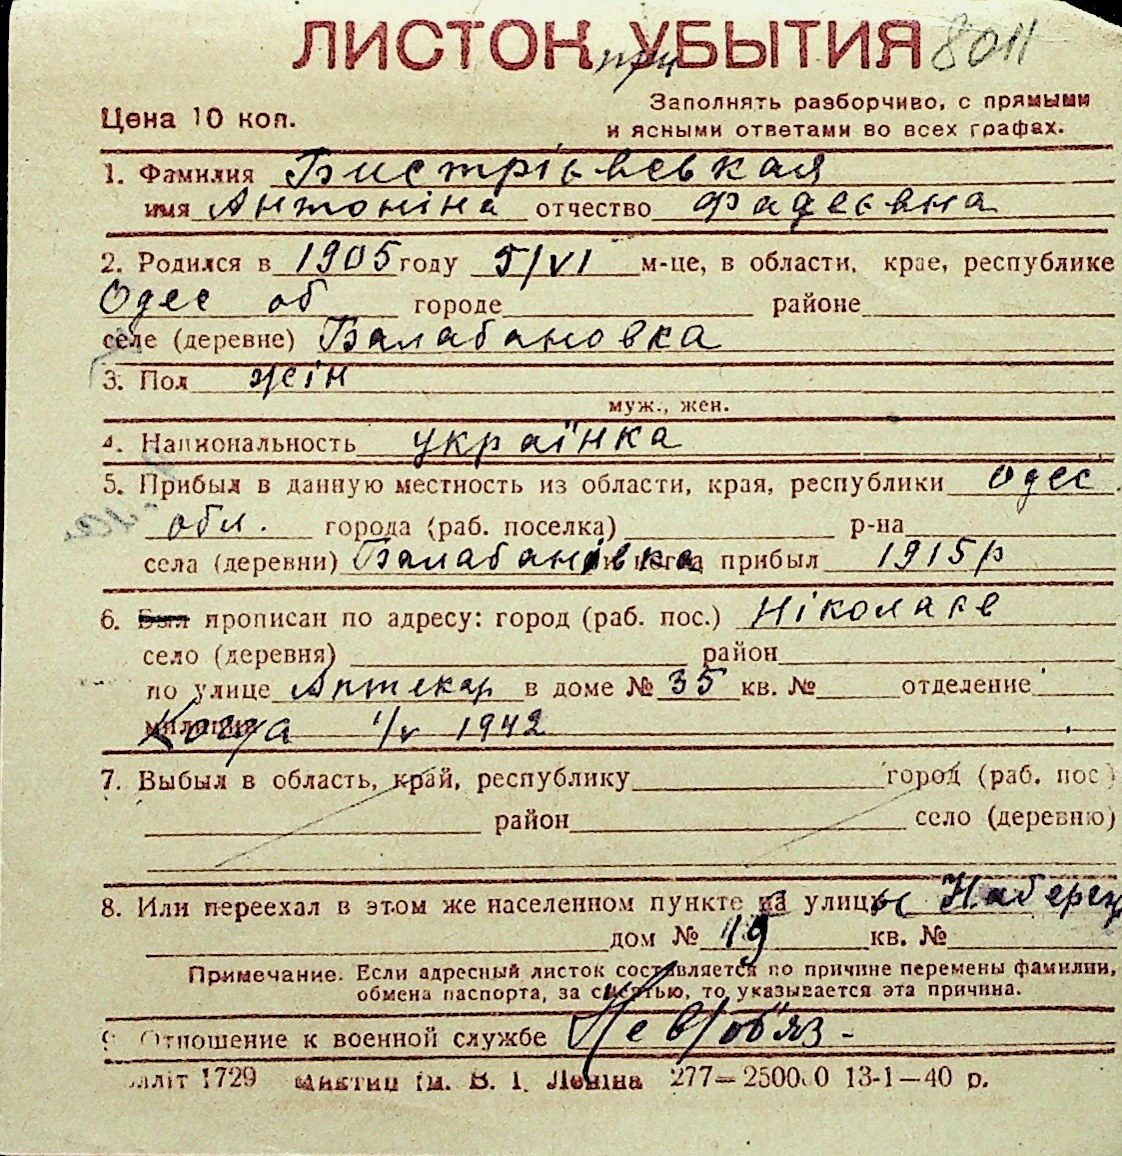 ЛИСТОК при УБЫТИЯ 8011
Цена 10 коп.
Заполнять разборчиво, с прямыми
и ясными ответами во всех графах.
1. Фамилия
имя Антоніна отчество Фадеевна
2. Родился в 1905 году 5/VI м-це, в области, крае, республике
Одес об городе районе
селе (деревне) Балабановка
3. Пол жін
муж., жен.
4. Национальность українка
5. Прибыл в данную местность из области, края, республики Одес
обл. города (раб. поселка) р-на
села (деревни) Балабанівка и когда прибыл 1915 р
6. Был прописан по адресу: город (раб. пос.) Ніколаєв
село (деревня) район
по улице Аптекар в доме № 35 кв. № отделение
милиции Когда 1/V 1942
7. Выбыл в область, край, республику город (раб. пос.)
район село (деревню)
8. Или переехал в этом же населенном пункте на улицы Набереж
дом № 19 кв. №
Примечание. Если адресный листок составляется по причине перемены фамилии,
обмена паспорта, за смертью, то указывается эта причина.
9. Отношение к военной службе Не в/об'яз -
літ 1729 ім. В. І. Леніна 277—25000 0 13-1—40 р.